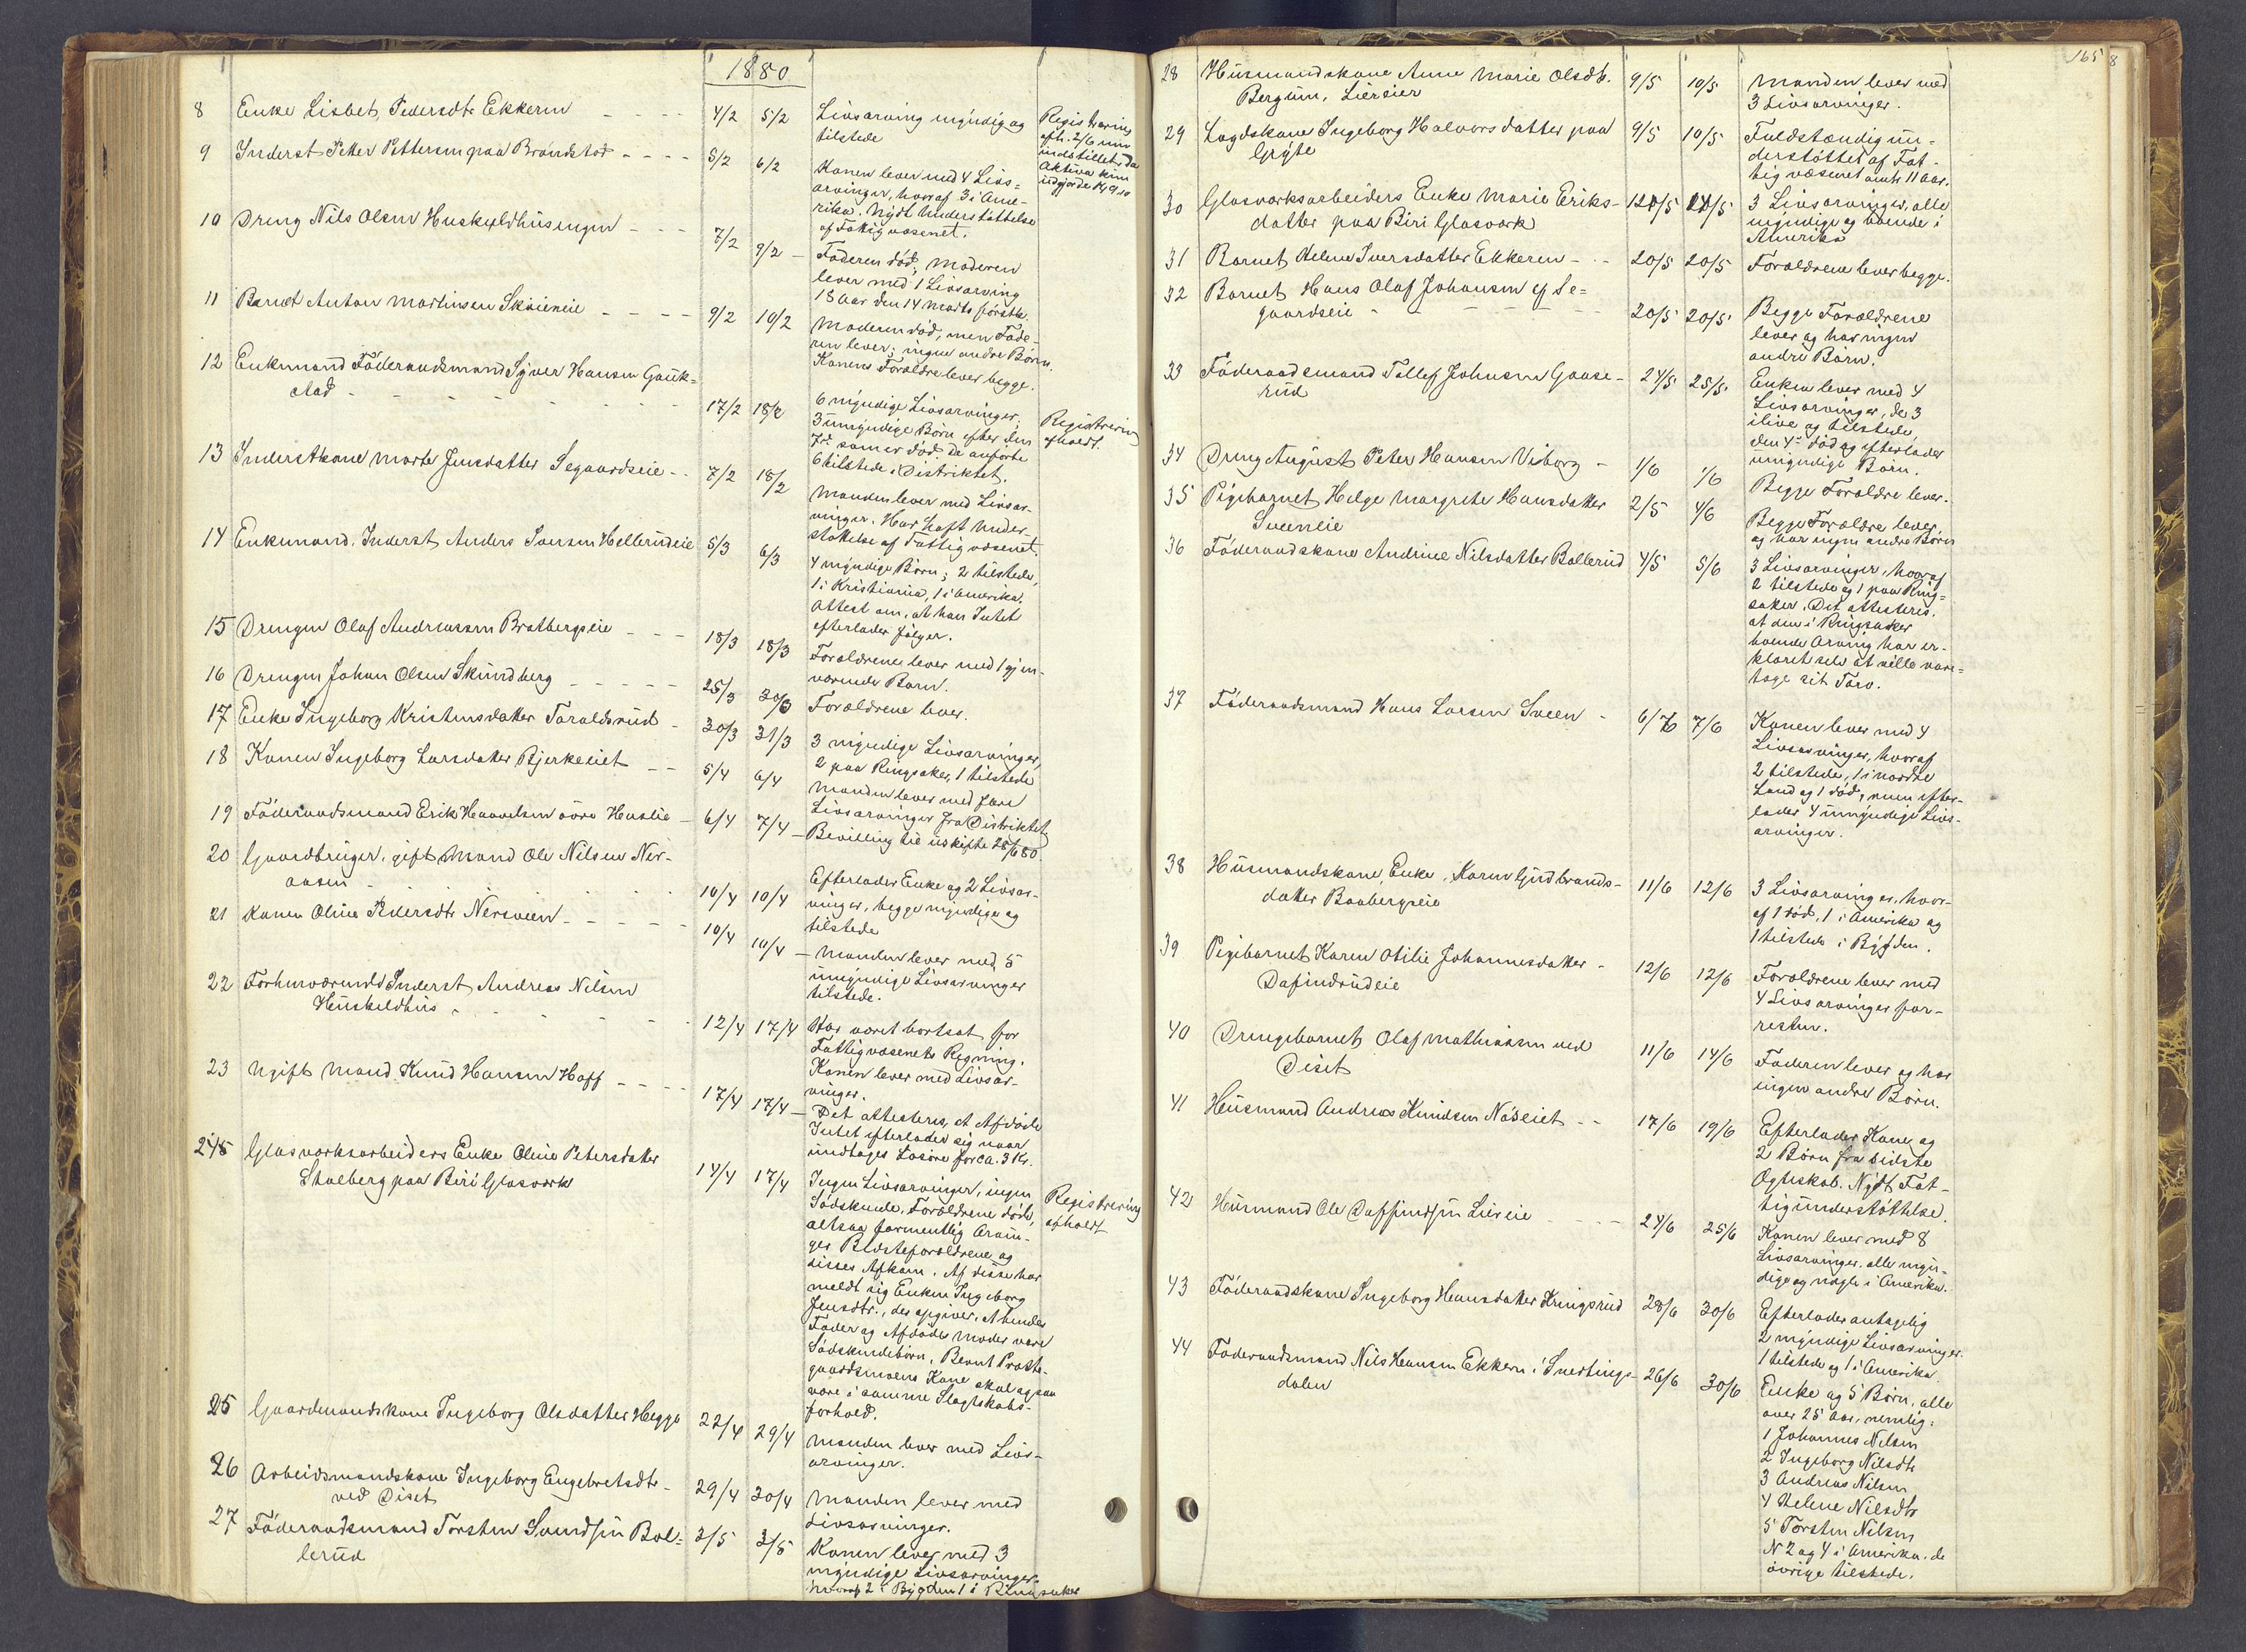 1880
8 Enke Lisbet Pedersdtr Ekkern 4/2 5/2 Livsarving myndig og
tilstede
Registrering
afh. 2/6 men
indstillet, da
Aktiva kun
udgjorde
9 Inderst Petter Pettersen paa Brøndstad 5/2 6/2 Konen lever med 4 Livs=
arvinger, hvoraf 3 i Ame-
rika. Nydt Understøttelse
af Fattigvæsenet.
10 Dreng Nils Olsen Huskeldhusengen 7/2 9/2 Faderen død; Moderen
lever med 1 Livsarving
18 Aar den 14 Marts førstk.
11 Barnet Anton Martinsen Skrieneie 9/2 10/2 Moderen død, men Fade-
ren lever; ingen andre Børn.
Konens Forældre lever begge.
12 Enkemand Føderaadsmand Syver Hansen Gauk=
stad 17/2 18/2 6 myndige Livsarvinger,
3 umyndige Børn efter den
7de som er død. De anførte
6 tilstede i Distriktet.
Registrering
afholdt.
13 Inderstkone Marte Jensdatter Segaardseie 7/2 18/2 Manden lever med Livsar-
vinger. Har haft Under-
støttelse af Fattigvæsenet.
14 Enkemand. Inderst Anders Iversen Hellerudeie 5/3 6/3 4 myndige Børn; 2 tilstede,
1 i Kristiania, 1 i Amerika.
Attest om, at han Intet
efterlader følger.
15 Drengen Olaf Andreassen Bratbergseie 18/3 18/3 Forældrene lever med 1 gjen-
værende Barn.
16 Drengen Johan Olsen Skundberg 25/3 30/3 Forældrene lever.
17 Enke Ingeborg Kristensdatter Taraldsrud 30/3 31/3 3 myndige Livsarvinger,
2 paa Ringsaker, 1 tilstede
18 Konen Ingeborg Larsdatter Bjerkeeiet 5/4 6/4 Manden lever med flere
Livsarvinger fra Distriktet
19 Føderaadsmand Erik Haavelsen øvre Haslie 6/4 7/4 Bevilling til uskifte 28/6 80.
20 Gaardbruger, gift Mand Ole Nilsen Ner-
aasen 10/4 10/4 Efterlader Enke og 2 Livsar-
vinger, begge myndige og
tilstede
21 Konen Oline Pedersdtr Nersveen 10/4 10/4 Manden lever med 5
umyndige Livsarvinger
tilstede.
22 Forhenværende Inderst Andreas Nilsen
Huskeldhus 12/4 17/4 Har været bortsat for
Fattigvæsenets Regning.
Konen lever med Livsar-
vinger.
23 Ugift Mand Knud Hansen Hoff 17/4 17/4 Det attesteres, at Afdøde
Intet efterlader sig naar
undtages Løsøre for ca. 3 Kr.
24 Glasværksarbeiders Enke Oline Petersdatter
Stalberg paa Biri Glasværk 14/4 17/4 Ingen Livsarvinger, ingen
Sødskende, Forældrene døde,
altsaa formentlig Arvin-
ger Bedsteforældrene og
disses Afkom. Af disse har
meldt sig Enken Ingeborg
Jensdtr., der opgiver, at hendes
Fader og Afdødes Moder vare
Sødskendebørn. Bernt Præste-
gaardsmoens Kone skal ogsaa
være i samme Slægtskabs-
forhold.
Registrering
afholdt
25 Gaardmandskone Ingeborg Olsdatter Hegge 22/4 29/4 Manden lever med Livs-
arvinger.
26 Arbeidsmandskone Ingeborg Engebretsdtr
ved Diset 29/4 30/4 Manden lever med
Livsarvinger.
27 Føderaadsmand Torsten Svendsen Bal=
lerud 3/5 3/5 Konen lever med 3
myndige Livsarvinger.
hvoraf 2 i Bygden 1 i Ringsaker
165
8
28 Husmandskone Anne Marie Olsdtr.
Bergum, Liereier 9/5 10/5 Manden lever med
3 Livsarvinger.
29 Lægdskone Ingeborg Halvorsdatter paa
Gryte 9/5 10/5 Fuldstændig un-
derstøttet af Fat-
tigvæsenet omtr 11 Aar.
30 Glasværksarbeiders Enke Marie Eriks-
datter paa Biri Glasværk 3 Livsarvinger, alle
myndige og boende i
Amerika
31 Barnet Helene Iversdatter Ekkeren 20/5 20/5 Forældrene lever begge.
32 Barnet Hans Olaf Johansen af Se=
gaardseie 20/5 20/5 Begge Forældrene
lever og har ingen
andre Børn.
33 Føderaadsmand Tollef Johnsen Gaase-
rud 24/5 25/5 Enken lever med 4
Livsarvinger, de 3
ilive og tilstede,
den 4de død og efterlader
umyndige Børn.
34 Dreng August Peter Hansen Viborg 1/6 1/6 Begge Forældre lever.
35 Pigebarnet Helga Margrete Hansdatter
Sveenleie 2/5 4/6 Begge Forældre lever,
og har ingen andre Børn
36 Føderaadskone Andrine Nilsdatter Ballerud 4/5 5/6 3 Livsarvinger, hvoraf
2 tilstede og 1 paa Ring=
saker. Det attesteres,
at den i Ringsaker
boende Arving har er-
klæret selv at ville vare=
tage sit Tarv.
37 Føderaadsmand Hans Larsen Sveen 6/6 7/6 Konen lever med 4
Livsarvinger, hvoraf
2 tilstede, 1 i nordre
Land og 1 død, men efter-
lader 4 umyndige Livs-
arvinger.
38 Husmandskone, Enke, Karen Gudbrands-
datter Baabergseie 11/6 12/6 3 Livsarvinger, hvor-
af 1 død, 1 i Amerika og
1 tilstede i Bygden.
39 Pigebarnet Karen Otilie Johannesdatter
Dafindrudeie 12/6 12/6 Forældrene lever med
4 Livsarvinger for-
resten.
40 Drengebarnet Olaf Mathiassen ved
Diset 11/6 14/6 Faderen lever og har
ingen andre Børn.
41 Husmand Andreas Knudsen Næseiet 17/6 19/6 Efterlader Kone og
2 Børn fra sidste
Ægteskab. Nydt Fat-
tigunderstøttelse.
42 Husmand Ole Daffindsen Liereie 24/6 25/6 Konen lever med 8
Livsarvinger, alle myn-
dige og nogle i Amerika.
43 Føderaadskone Ingeborg Hansdatter Kringsrud 28/6 30/6 Efterlader antagelig
2 myndige Livsarvinger.
1 tilstede og 1 i Amerika
44 Føderaadsmand Nils Hansen Ekkern i Snertings-
dalen 26/6 30/6 Enke og 5 Børn, alle
over 25 Aar, nemlig:
1 Johannes Nilsen
2 Ingeborg Nilsdtr
3 Andreas Nilsen
4 Helene Nilsdtr
5 Torsten Nilsen
N 2 og 4 i Amerika. de
øvrige tilstede.